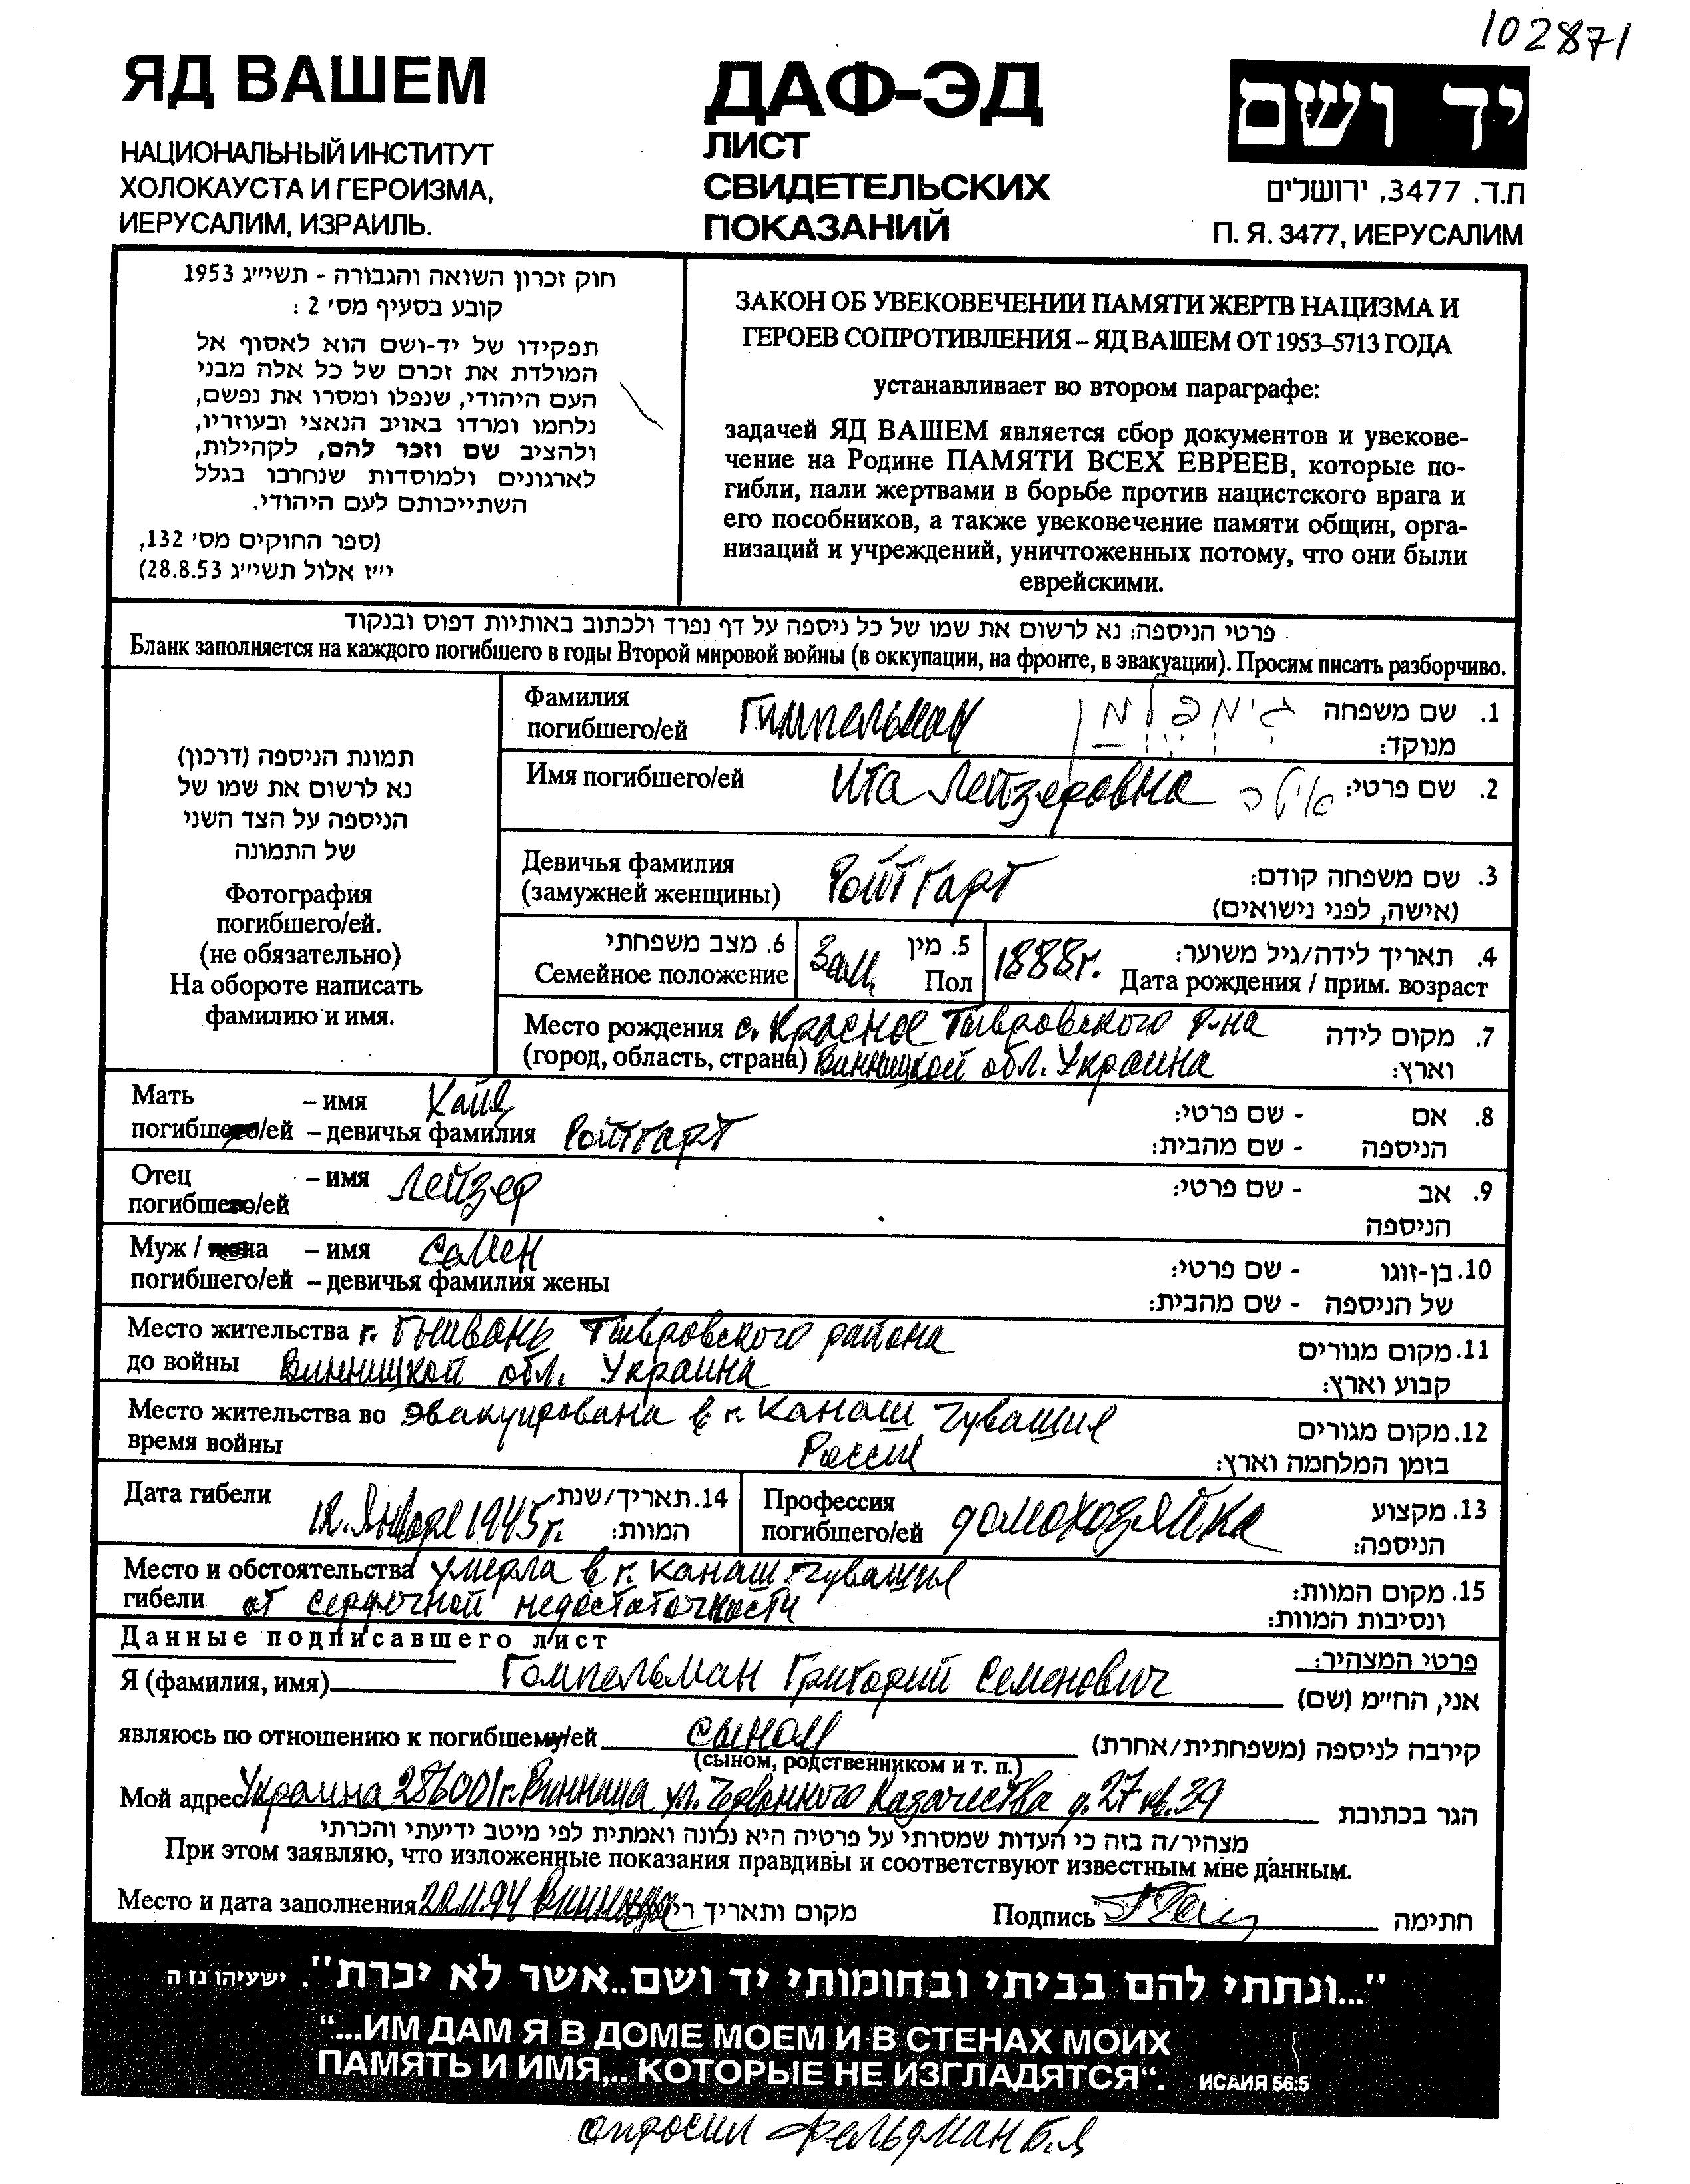 102871
ЯД ВАШЕМ
НАЦИОНАЛЬНЫЙ ИНСТИТУТ
ХОЛОКАУСТА И ГЕРОИЗМА,
ИЕРУСАЛИМ, ИЗРАИЛЬ.
ДАФ-ЭД
ЛИСТ
СВИДЕТЕЛЬСКИХ
ПОКАЗАНИЙ
יד ושם
ת.ד. 3477, ירושלים
П. Я. 3477, ИЕРУСАЛИМ
חוק זכרון השואה והגבורה - תשי״ג 1953
קובע בסעיף מס׳ 2 :
תפקידו של יד-ושם הוא לאסוף אל
המולדת את זכרם של כל אלה מבני
העם היהודי, שנפלו ומסרו את נפשם,
נלחמו ומרדו באויב הנאצי ובעוזריו,
ולהציב שם וזכר להם, לקהילות,
לארגונים ולמוסדות שנחרבו בגלל
השתייכותם לעם היהודי.
(ספר החוקים מס׳ 132,
י״ז אלול תשי״ג 28.8.53)
ЗАКОН ОБ УВЕКОВЕЧЕНИИ ПАМЯТИ ЖЕРТВ НАЦИЗМА И
ГЕРОЕВ СОПРОТИВЛЕНИЯ – ЯД ВАШЕМ ОТ 1953–5713 ГОДА
устанавливает во втором параграфе:
задачей ЯД ВАШЕМ является сбор документов и увекове-
чение на Родине ПАМЯТИ ВСЕХ ЕВРЕЕВ, которые по-
гибли, пали жертвами в борьбе против нацистского врага и
его пособников, а также увековечение памяти общин, орга-
низаций и учреждений, уничтоженных потому, что они были
еврейскими.
פרטי הניספה: נא לרשום את שמו של כל ניספה על דף נפרד ולכתוב באותיות דפוס ובנקוד
Бланк заполняется на каждого погибшего в годы Второй мировой войны (в оккупации, на фронте, в эвакуации). Просим писать разборчиво.
תמונת הניספה (דרכון)
נא לרשום את שמו של
הניספה על הצד השני
של התמונה
Фотография
погибшего/ей.
(не обязательно)
На обороте написать
фамилию и имя.
Фамилия
погибшего/ей Гимпельман גימפלמן 1. שם משפחה
מנוקד:
Имя погибшего/ей Ита Лейзеровна איטה 2. שם פרטי:
Девичья фамилия
(замужней женщины) Ройтгарт 3. שם משפחה קודם:
(אישה, לפני נישואים)
6. מצב משפחתי
Семейное положение Зам. 5. מין
Пол 1888г. 4. תאריך לידה/גיל משוער:
Дата рождения / прим. возраст
Место рождения с. Красное Тывровского р-на 7. מקום לידה
(город, область, страна) Винницкой обл. Украина וארץ:
Мать – имя Хая 8. אם - שם פרטי:
погибшего/ей – девичья фамилия Ройтгарт הניספה - שם מהבית:
Отец – имя Лейзер 9. אב - שם פרטי:
погибшего/ей הניספה
Муж / жена – имя Семен 10. בן-זוגו - שם פרטי:
погибшего/ей – девичья фамилия жены של הניספה - שם מהבית:
Место жительства г. Гнивань Тывровского района 11. מקום מגורים
до войны Винницкой обл. Украина קבוע וארץ:
Место жительства во эвакуирована в г. Канаш Чувашия 12. מקום מגורים
время войны Россия בזמן המלחמה וארץ:
Дата гибели 12. Января 1945г. 14. תאריך/שנת
המוות:
Профессия
погибшего/ей домохозяйка 13. מקצוע
הניספה:
Место и обстоятельства умерла в г. Канаш Чувашия 15. מקום המוות:
гибели от сердечной недостаточности ונסיבות המוות:
Данные подписавшего лист פרטי המצהיר:
Я (фамилия, имя) Гомпельман Григорий Семенович אני, החי״מ (שם)
являюсь по отношению к погибшему/ей сыном קירבה לניספה (משפחתית/אחרת)
(сыном, родственником и т. п.)
Мой адрес Украина 286001 г. Винница ул. Червонного Казачества д. 27 кв. 39 הגר בכתובת
מצהיר/ה בזה כי העדות שמסרתי על פרטיה היא נכונה ואמתית לפי מיטב ידיעתי והכרתי
При этом заявляю, что изложенные показания правдивы и соответствуют известным мне данным.
Место и дата заполнения 22.11.94 Винница מקום ותאריך Подпись חתימה
"...ונתתי להם בביתי ובחומותי יד ושם..אשר לא יכרת". ישעיהו נז ה
“...ИМ ДАМ Я В ДОМЕ МОЕМ И В СТЕНАХ МОИХ
ПАМЯТЬ И ИМЯ,.. КОТОРЫЕ НЕ ИЗГЛАДЯТСЯ“. ИСАИЯ 56:5
опросил Фельдман Б.Я